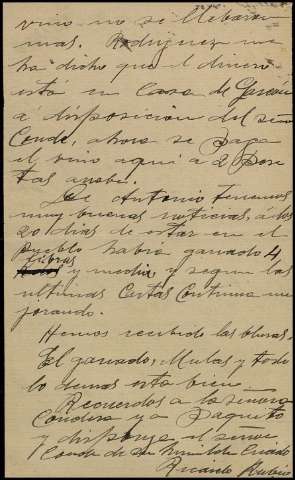 vino no si llebaran
mas. Rodriguez me
ha dicho que el dinero
está en casa de Garcia
a disposición del señor
Conde, ahora se paga
el vino aqui a 2 Pese
tas arroba.
De Antonio tenemos
muy buenas noticias, a los
20 dias de estar en el
Pueblo habia ganado 4
libras y media, y segun las
ultimas Cartas Continua me
jorando.
Hemos recibido las blusas.
El ganado, Mulas y todo
lo demas esta bien
Recuerdos a la señora
Condesa y a Paquito
y disponga el señor
Conde de su humilde Criado
Ricardo Rubio